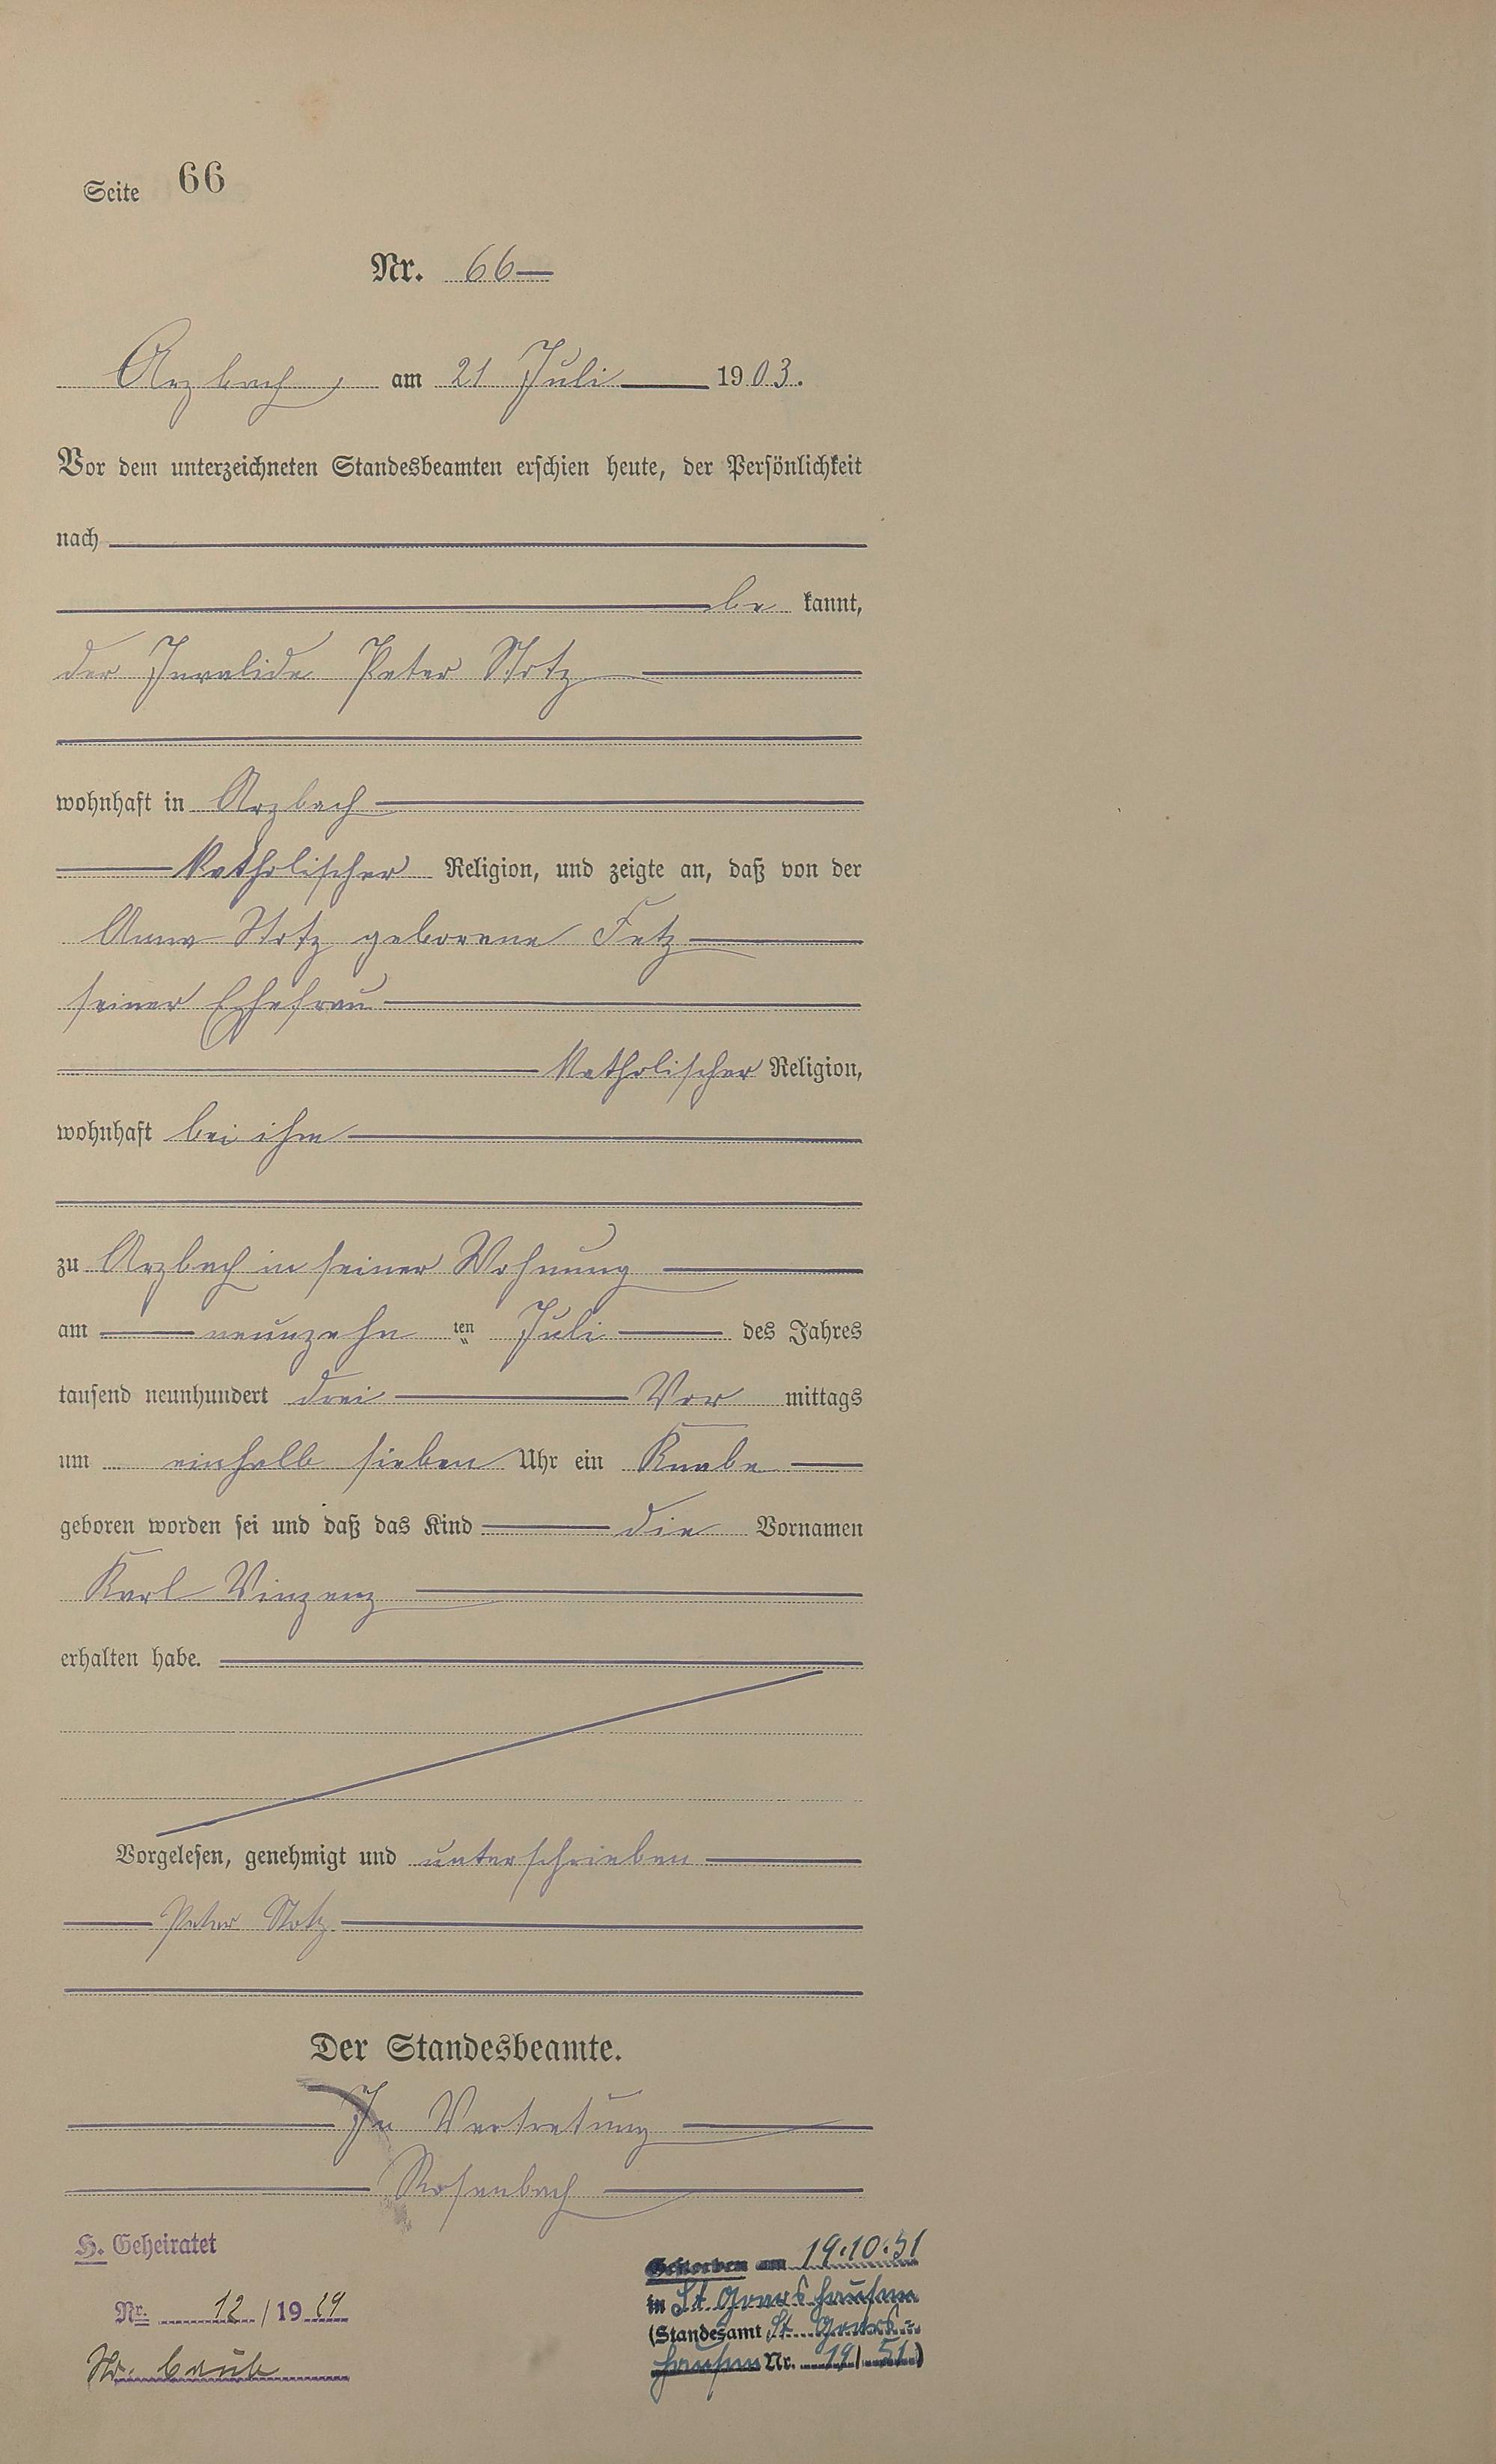 Seite 66
Nr. 66
Arzbach, am 21 Juli 1903.
Vor dem unterzeichneten Standesbeamten erschien heute, der Persönlichkeit
nach
be kannt,
der Invalide Peter Stotz
wohnhaft in Arzbach
katholischer Religion, und zeigte an, daß von der
Anna Stotz geborene Fetz
seiner Ehefrau
katholischer Religion,
wohnhaft bei ihm
zu Arzbach in seiner Wohnung
am neunzehn ten Juli des Jahres
tausend neunhundert drei Vor mittags
um einhalb sieben Uhr ein Knabe
geboren worden sei und daß das Kind die Vornamen
Karl Vinzenz
erhalten habe.
Vorgelesen, genehmigt und unterschrieben
Peter Stotz
Der Standesbeamte.
In Vertretung
Rosenbach
H. Geheiratet
Nr. 12/1929
St. Caub
Gestorben am 19.10.51
in St Goarshausen
(Standesamt St. Goars-
hausen Nr. 19/51)